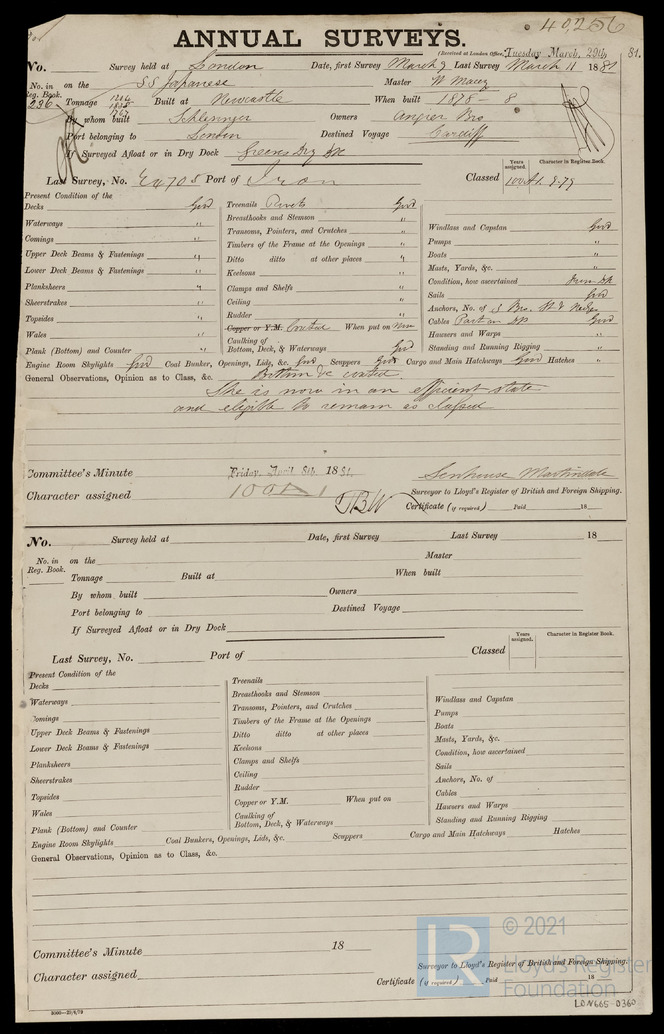 40,256
ANNUAL SURVEYS.
(Received at London Office, Tuesday March, 29th, 81.
No. Survey held at London Date, first Survey March 9 Last Survey March 11 1881
No. in Reg. Book. on the SS Japanese Master W Macey
236 Tonnage Built at Newcastle When built 1878 - 8
By whom built Owners Angier Bro
Port belonging to London Destined Voyage Cardiff
If Surveyed Afloat or in Dry Dock Greens Dry Dk
Years assigned. Character in Register Book.
Last Survey, No. Port of Iron Classed 100A1. 9.79
Present Condition of the
Decks Good Treenails Rivets Good
Waterways " Breasthooks and Stemson " Windlass and Capstan Good
Comings " Transoms, Pointers, and Crutches " Pumps "
Upper Deck Beams & Fastenings " Timbers of the Frame at the Openings " Boats "
Lower Deck Beams & Fastenings " Ditto ditto at other places " Masts, Yards, &c. "
Planksheers " Keelsons " Condition, how ascertained from Dk
Sheerstrakes " Clamps and Shelfs " Sails Good
Topsides " Ceiling " Anchors, No. of 3 Bro. St & Kedge
Wales " Rudder " Cables Part on DK Good
Plank (Bottom) and Counter " Copper or Y.M. Coated When put on now Hawsers and Warps "
Caulking of Bottom, Deck, & Waterways Good Standing and Running Rigging "
Engine Room Skylights Good Coal Bunker, Openings, Lids, &c. Good Scuppers Good Cargo and Main Hatchways Good Hatches "
General Observations, Opinion as to Class, &c. Bottom &c coated.
She is now in an efficient state
and eligible to remain as classed
Committee's Minute Friday, April 8th. 1881. Senhouse Martindale
Character assigned 100A1 TBW Surveyor to Lloyd's Register of British and Foreign Shipping.
Certificate (if required) Paid 18
No. Survey held at Date, first Survey Last Survey 18
No. in Reg. Book. on the Master
Tonnage Built at When built
By whom built Owners
Port belonging to Destined Voyage
If Surveyed Afloat or in Dry Dock
Years assigned. Character in Register Book.
Last Survey, No. Port of Classed
Present Condition of the
Decks Treenails
Waterways Breasthooks and Stemson Windlass and Capstan
Comings Transoms, Pointers, and Crutches Pumps
Upper Deck Beams & Fastenings Timbers of the Frame at the Openings Boats
Lower Deck Beams & Fastenings Ditto ditto at other places Masts, Yards, &c.
Planksheers Keelsons Condition, how ascertained
Sheerstrakes Clamps and Shelfs Sails
Topsides Ceiling Anchors, No. of
Wales Rudder Cables
Plank (Bottom) and Counter Copper or Y.M. When put on Hawsers and Warps
Caulking of Bottom, Deck, & Waterways Standing and Running Rigging
Engine Room Skylights Coal Bunkers, Openings, Lids, &c. Scuppers Cargo and Main Hatchways Hatches
General Observations, Opinion as to Class, &c.
Committee's Minute 18
Character assigned Surveyor to Lloyd's Register of British and Foreign Shipping.
Certificate (if required) Paid 18
LR © 2021 Lloyd's Register Foundation
LDN665-0360